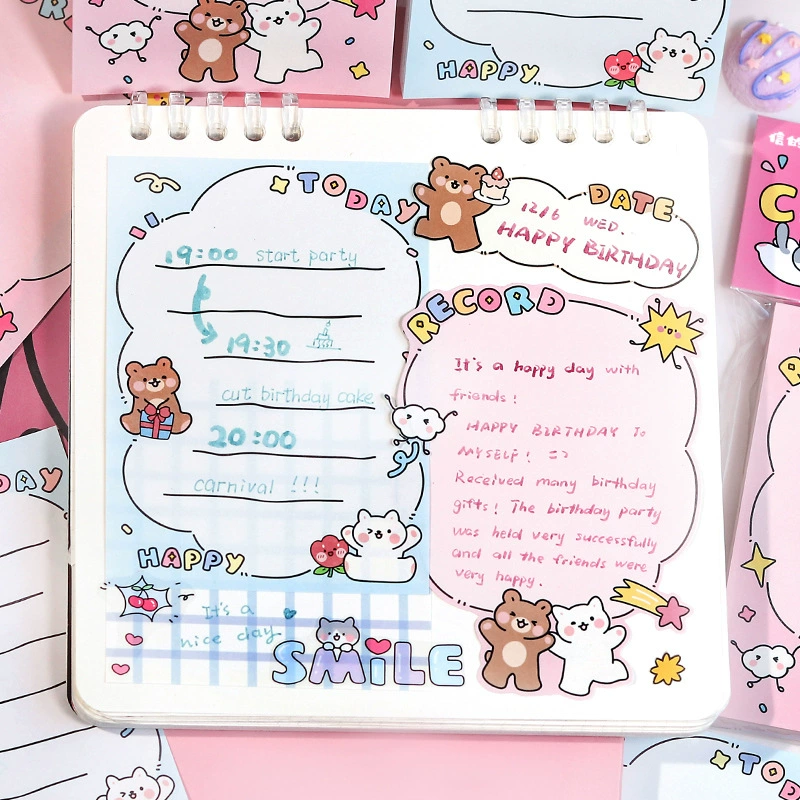 HAPPY
TODAY
19:00 start party
19:30
cut birthday cake
20:00
carnival !!!
HAPPY
It's a
nice day
SMiLE
DATE
12/6 WED.
HAPPY BIRTHDAY
RECORD
It's a happy day with
friends!
HAPPY BIRTHDAY To
MYSELF! =>
Received many birthday
gifts! The birthday party
was held very successfully
and all the friends were
very happy.